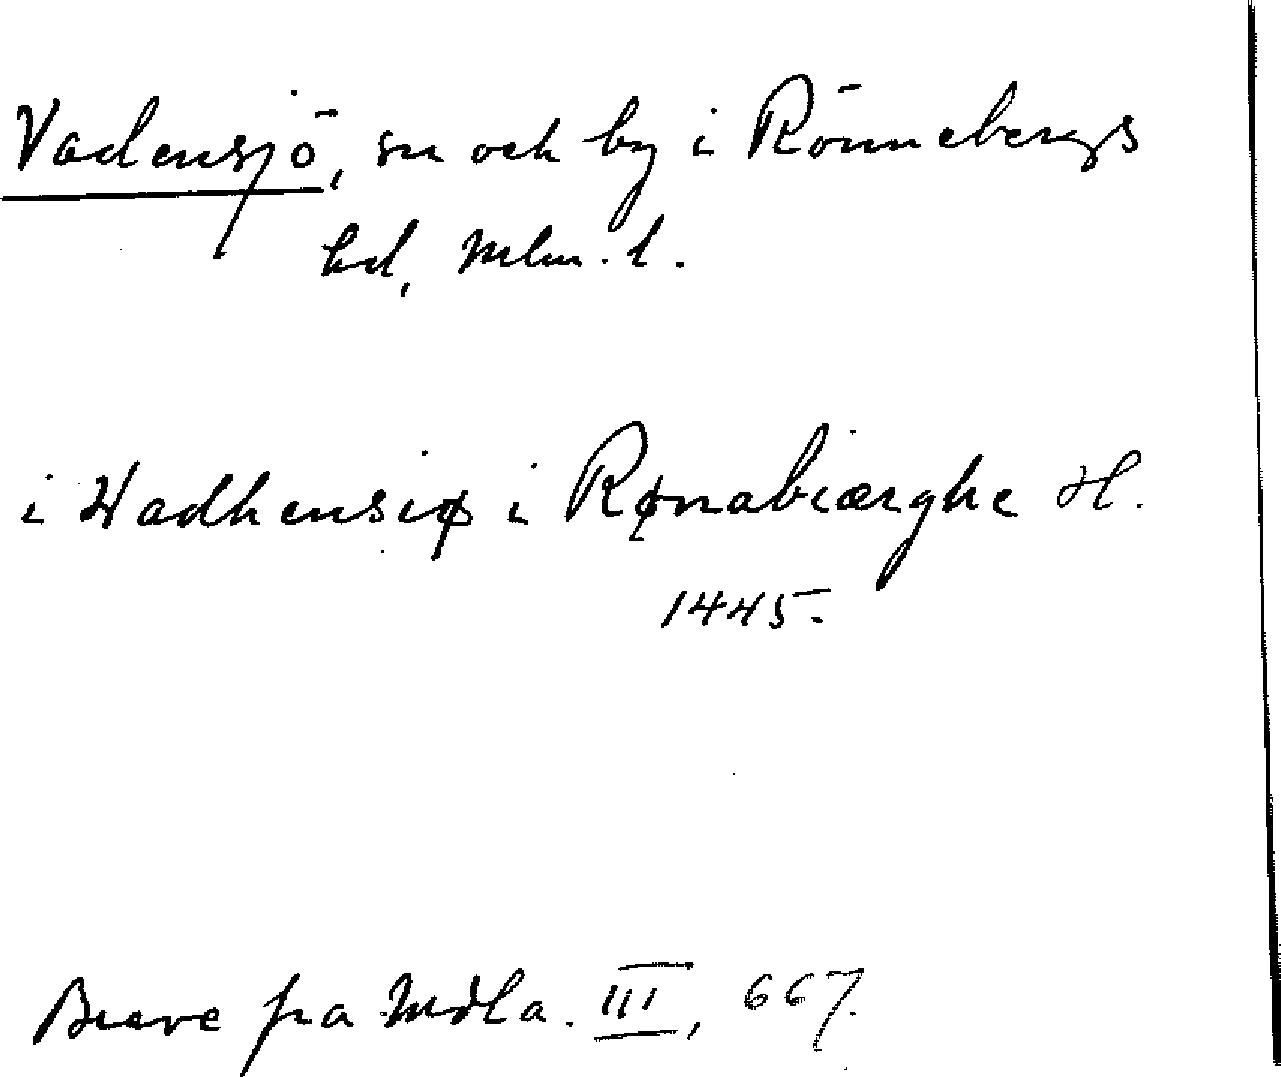 Vadensjö, sn och by i Rönnebergs
hd, Mlm. l.
i Wadhensiø i Rønabiærghe H.
1445.
Breve fra Mdla. III, 667.